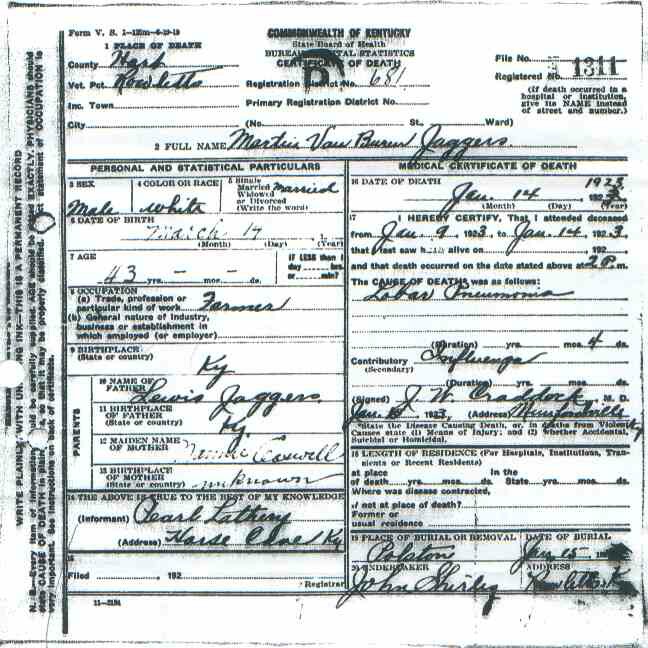 Form V. S. 1-125m-6-19-19
COMMONWEALTH OF KENTUCKY
State Board of Health
BUREAU OF VITAL STATISTICS
CERTIFICATE OF DEATH
1 PLACE OF DEATH
County Hart
Vot. Pct. Rowletts
Inc. Town
City (No. St., Ward)
Registration District No. 681
Primary Registration District No.
File No. 1311
Registered No.
(If death occurred in a hospital or institution, give its NAME instead of street and number.)
2 FULL NAME Martin Van Buren Jaggers
PERSONAL AND STATISTICAL PARTICULARS
3 SEX Male
4 COLOR OR RACE White
5 Single Married Widowed or Divorced (Write the word) Married
6 DATE OF BIRTH
March 14 1
(Month) (Day) (Year)
7 AGE
43 yrs. - mos. - ds.
IF LESS than 1 day hrs. or min?
8 OCCUPATION
(a) Trade, profession or particular kind of work Farmer
(b) General nature of industry, business or establishment in which employed (or employer)
9 BIRTHPLACE
(State or country) Ky
PARENTS
10 NAME OF FATHER Lewis Jaggers
11 BIRTHPLACE OF FATHER (State or country) Ky
12 MAIDEN NAME OF MOTHER
13 BIRTHPLACE OF MOTHER (State or country) unknown
14 THE ABOVE IS TRUE TO THE BEST OF MY KNOWLEDGE
(Informant) Pearl
(Address) Horse Cave Ky
15
Filed 192
Registrar
11-3184
MEDICAL CERTIFICATE OF DEATH
16 DATE OF DEATH
Jan. 14 1923
(Month) (Day) (Year)
17 I HEREBY CERTIFY, That I attended deceased
from Jan. 9 1923 to Jan. 14 1923
that I last saw h alive on 192
and that death occurred on the date stated above at 2 P. m.
The CAUSE OF DEATH was as follows:
Lobar Pneumonia
(Duration) yrs. mos. 4 ds.
Contributory Influenza
(Secondary)
(Duration) yrs. mos. ds.
(Signed) J. W. Craddock M. D.
Jan. 1923 (Address) Munfordville Ky
*State the Disease Causing Death, or, in deaths from Violent Causes state (1) Means of Injury; and (2) whether Accidental, Suicidal or Homicidal.
18 LENGTH OF RESIDENCE (For Hospitals, Institutions, Transients or Recent Residents)
at place of death yrs. mos. ds. In the State yrs. mos. ds.
Where was disease contracted,
if not at place of death?
Former or usual residence
19 PLACE OF BURIAL OR REMOVAL DATE OF BURIAL
Polston Jan 15
20 UNDERTAKER ADDRESS
John Shirley Rowletts Ky
WRITE PLAINLY, WITH UNFADING INK—THIS IS A PERMANENT RECORD